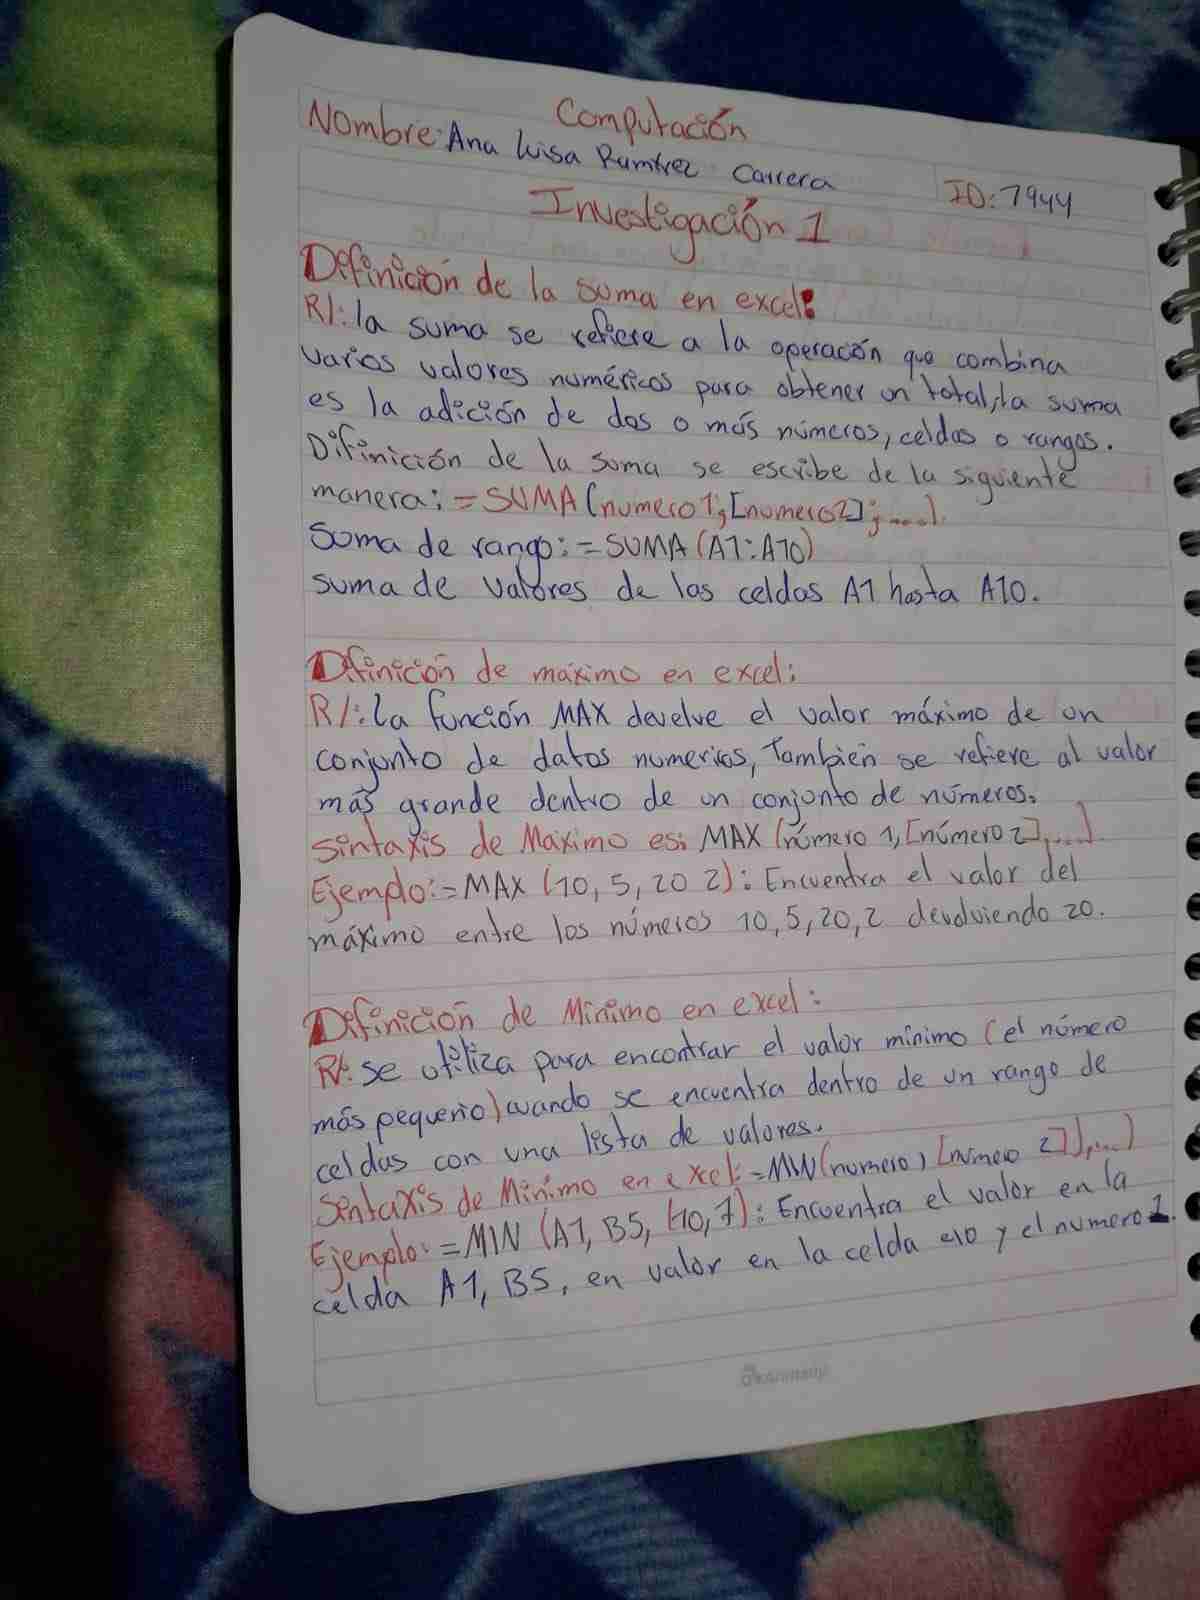 Computación
Nombre: Ana Luisa Ramírez Carrera ID: 7944
Investigación 1
Difinición de la suma en excel:
R/: la suma se refiere a la operación que combina
varios valores numéricos para obtener un total, la suma
es la adición de dos o más números, celdas o rangos.
Difinición de la suma se escribe de la siguiente
manera: =SUMA(numero1;[numero2];....).
Suma de rango: =SUMA(A1:A10)
suma de valores de las celdas A1 hasta A10.
Difinición de máximo en excel:
R/: La función MAX develve el valor máximo de un
conjunto de datos numericos, También se refiere al valor
más grande dentro de un conjunto de números.
Sintaxis de Maximo es: MAX (número 1, [número 2],....)
Ejemplo: =MAX (10, 5, 20 2): Encuentra el valor del
máximo entre los números 10, 5, 20, 2 devolviendo 20.
Difinición de Mínimo en excel:
R/: se utiliza para encontrar el valor mínimo (el número
más pequeño) cuando se encuentra dentro de un rango de
celdas con una lista de valores.
Sentaxis de Mínimo en excel: =MIN(numero) [numero 2]],...)
Ejemplo: =MIN (A1, B5, (10, 7): Encuentra el valor en la
celda A1, B5, en valor en la celda e10 y el numero 1.